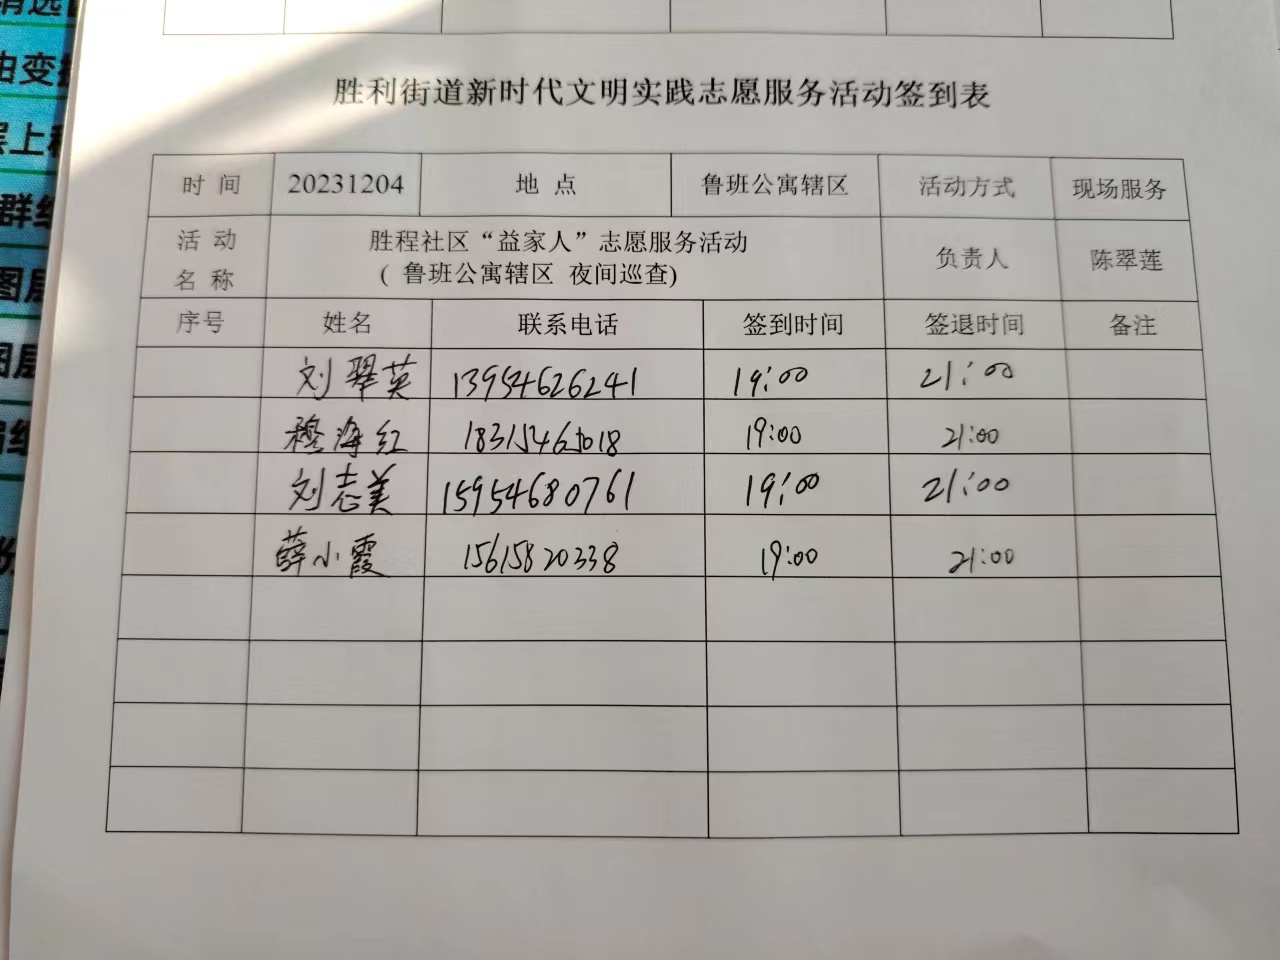 胜利街道新时代文明实践志愿服务活动签到表
时 间 20231204 地 点 鲁班公寓辖区 活动方式 现场服务
活 动 名 称 胜程社区“益家人”志愿服务活动 负责人 陈翠莲
( 鲁班公寓辖区 夜间巡查)
序号 姓名 联系电话 签到时间 签退时间 备注
刘翠英 13954626241 19:00 21:00
穆海红 19:00 21:00
刘志美 15954680761 19:00 21:00
薛小霞 15615820338 19:00 21:00